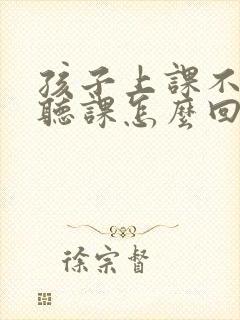 孩子上課不
聽課怎麼回
徐宗督